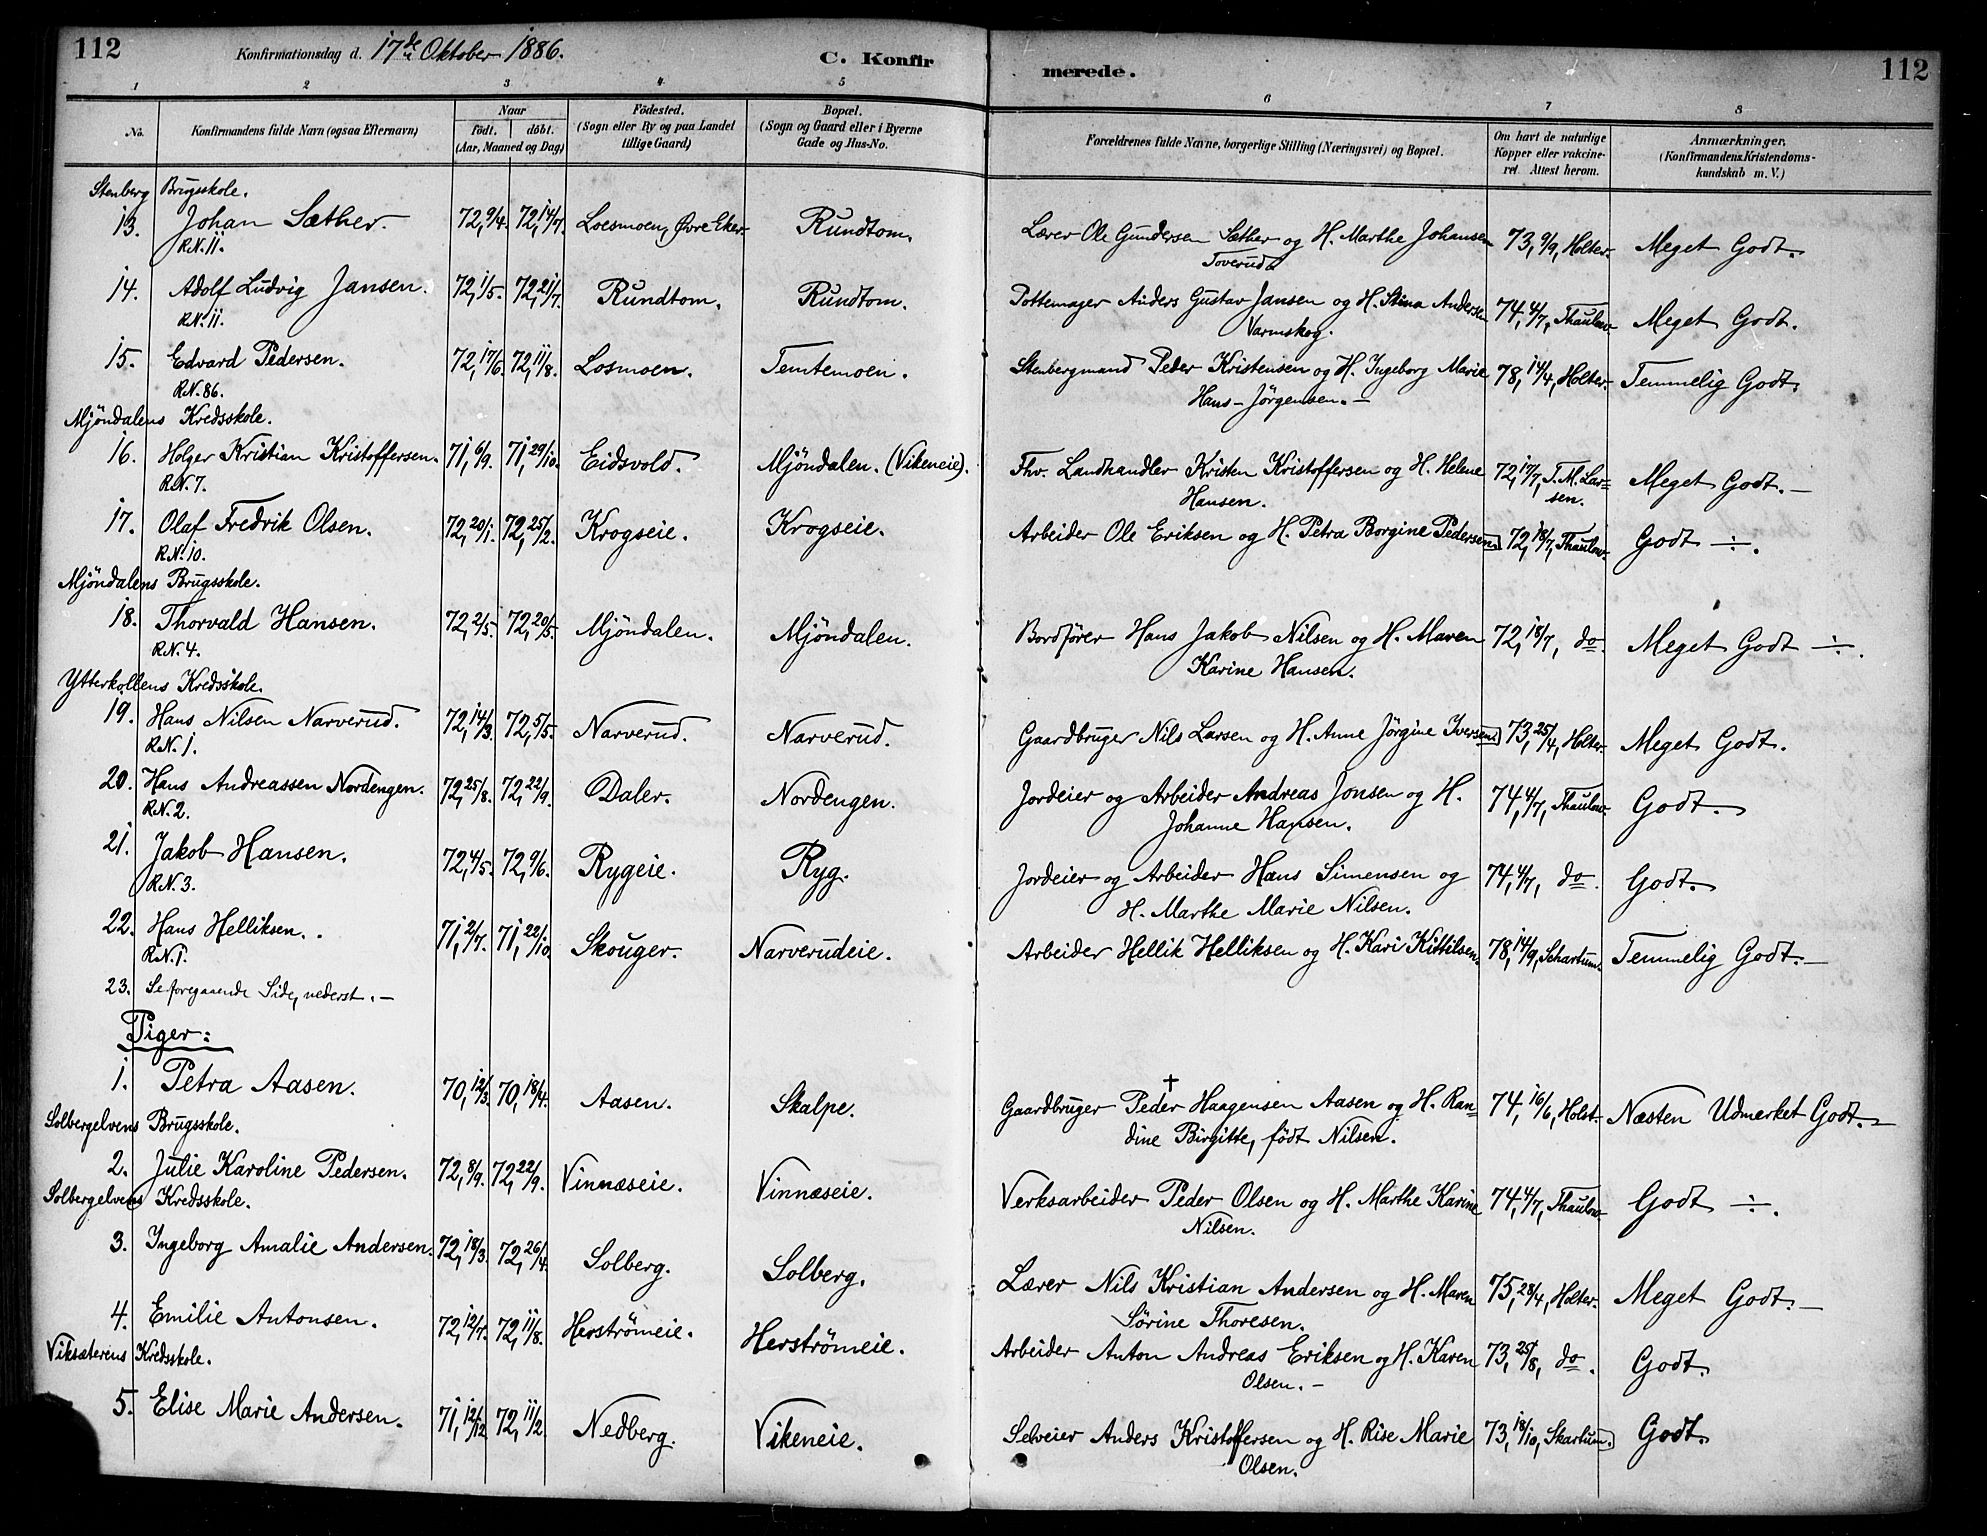 112 Konfirmationsdag d. 17de Oktober 1886. C. Konfir merede. 112
1 2 3 4 5 6 7 8
No. Konfirmandens fulde Navn (ogsaa Efternavn) Naar født. døbt. (Aar, Maaned og Dag) Fødested. (Sogn eller By og paa Landet tillige Gaard) Bopæl. (Sogn og Gaard eller i Byerne Gade og Hus-No. Forældrenes fulde Navne, borgerlige Stilling (Næringsvei) og Bopæl. Om havt de naturlige Kopper eller vakcineret. Attest herom. Anmærkninger. (Konfirmandens Kristendomskundskab m. V.)
Stenberg Brugsskole.
13. Johan Sæther. 72, 9/4. 72, 14/7. Loesmoen, Øvre Eker. Rundtom. Lærer Ole Gundersen Sæther og H. Marthe Johansen 73, 9/9, Holter. Meget Godt.
R.N. 11. Toverud.
14. Adolf Ludvig Jansen. 72, 1/5. 72, 21/7. Rundtom. Rundtom. Pottemager Anders Gustav Jansen og H. Stina Andersen 74, 4/7, Thaulow. Meget Godt.
R.N. 11. Varmskog.
15. Edvard Pedersen. 72, 17/6. 72, 11/8. Losmoen. Temtemoen. Stenbergmand Peder Kristensen og H. Ingeborg Marie 78, 14/4, Holter. Temmelig Godt.
R.N. 86. Hans-Jörgensen. —
Mjöndalens Kredsskole.
16. Holger Kristian Kristoffersen. 71, 6/9. 71, 29/10. Eidsvold. Mjöndalen. (Vikeneie). Fhv. Landhandler Kristen Kristoffersen og H. Helene 72, 17/7, T. M. Lar=
R.N. 7. Hansen. sen. Meget Godt. —
17. Olaf Fredrik Olsen. 72, 20/1. 72, 25/2. Krogseie. Krogseie. Arbeider Ole Eriksen og H. Petra Borgine Pedersen. 72, 18/7, Thaulow. Godt ÷.
R.N. 10.
Mjöndalens Brugsskole.
18. Thorvald Hansen. 72, 2/5. 72, 20/5. Mjöndalen. Mjöndalen. Bordförer Hans Jakob Nilsen og H. Maren 72, 18/7, do. Meget Godt ÷.
R.N. 4. Karine Hansen.
Ytterkollens Kredsskole.
19. Hans Nilsen Narverud. 72, 14/3. 72, 5/5. Narverud. Narverud. Gaardbruger Nils Larsen og H. Anne Jörgine Iversen. 73, 25/4, Holter. Meget Godt.
R.N. 1.
20. Hans Andreassen Nordengen. 72, 25/8. 72, 22/9. Daler. Nordengen. Jordeier og Arbeider Andreas Jonsen og H. 74, 4/7, Thaulow. Godt.
R.N. 2. Johanne Hansen.
21. Jakob Hansen. 72, 4/5. 72, 9/6. Rygeie. Ryg. Jordeier og Arbeider Hans Simensen og 74, 4/7, do. Godt.
R.N. 3. H. Marthe Marie Nilsen.
22. Hans Helliksen. . 71, 2/7. 71, 22/10. Skouger. Narverudeie. Arbeider Hellik Helliksen og H. Kari Kittilsen. 78, 14/9, Schartum. Temmelig Godt. —
R.N. 1.
23. Se foregaaende Side, nederst. —
Piger:
1. Petra Aasen. 70, 12/3. 70, 18/4. Aasen. Skalpe. Gaardbruger Peder † Haagensen Aasen og H. Ran= 74, 16/6, Holst. Næsten Udmærket Godt. —
Solbergelvens Brugsskole. dine Birgitte, födt Nilsen.
2. Julie Karoline Pedersen. 72, 8/9. 72, 22/9. Vinnæseie. Vinnæseie. Verksarbeider Peder Olsen og H. Marthe Karine 74, 4/7, Thaulow. Godt ÷.
Solbergelvens Kredsskole. Nilsen.
3. Ingeborg Amalie Andersen. 72, 18/3. 72, 26/4. Solberg. Solberg. Lærer Nils Kristian Andersen og H. Maren 75, 28/4, Holter. Meget Godt. —
Sörine Thoresen.
4. Emilie Antonsen. 72, 12/7. 72, 11/8. Herströmeie. Herströmeie. Arbeider Anton Andreas Eriksen og H. Karen 73, 25/8, do. Godt.
Viksæterens Kredsskole. Olsen. —
5. Elise Marie Andersen. 71, 12/12. 72, 11/2. Nedberg. Vikeneie. Selveier Anders Kristoffersen og H. Rise Marie 73, 18/10, Skartum. Godt.
Olsen.